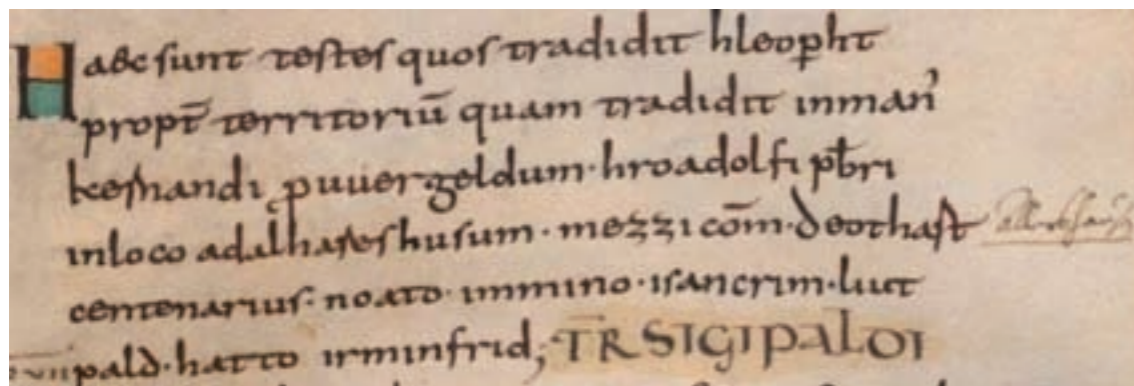 Haec sunt testes quos tradidit hleopht
propt̄ territoriū quam tradidit inman̄
keshandi puuergeldum · hroadolfi pb̄ri
inloco adalhareshusum · mezzi com̄ · deothaft
centenarius · noato · immino · isancrim · liut
pald · hatto irminfrid; TR̄ SIGIPALDI